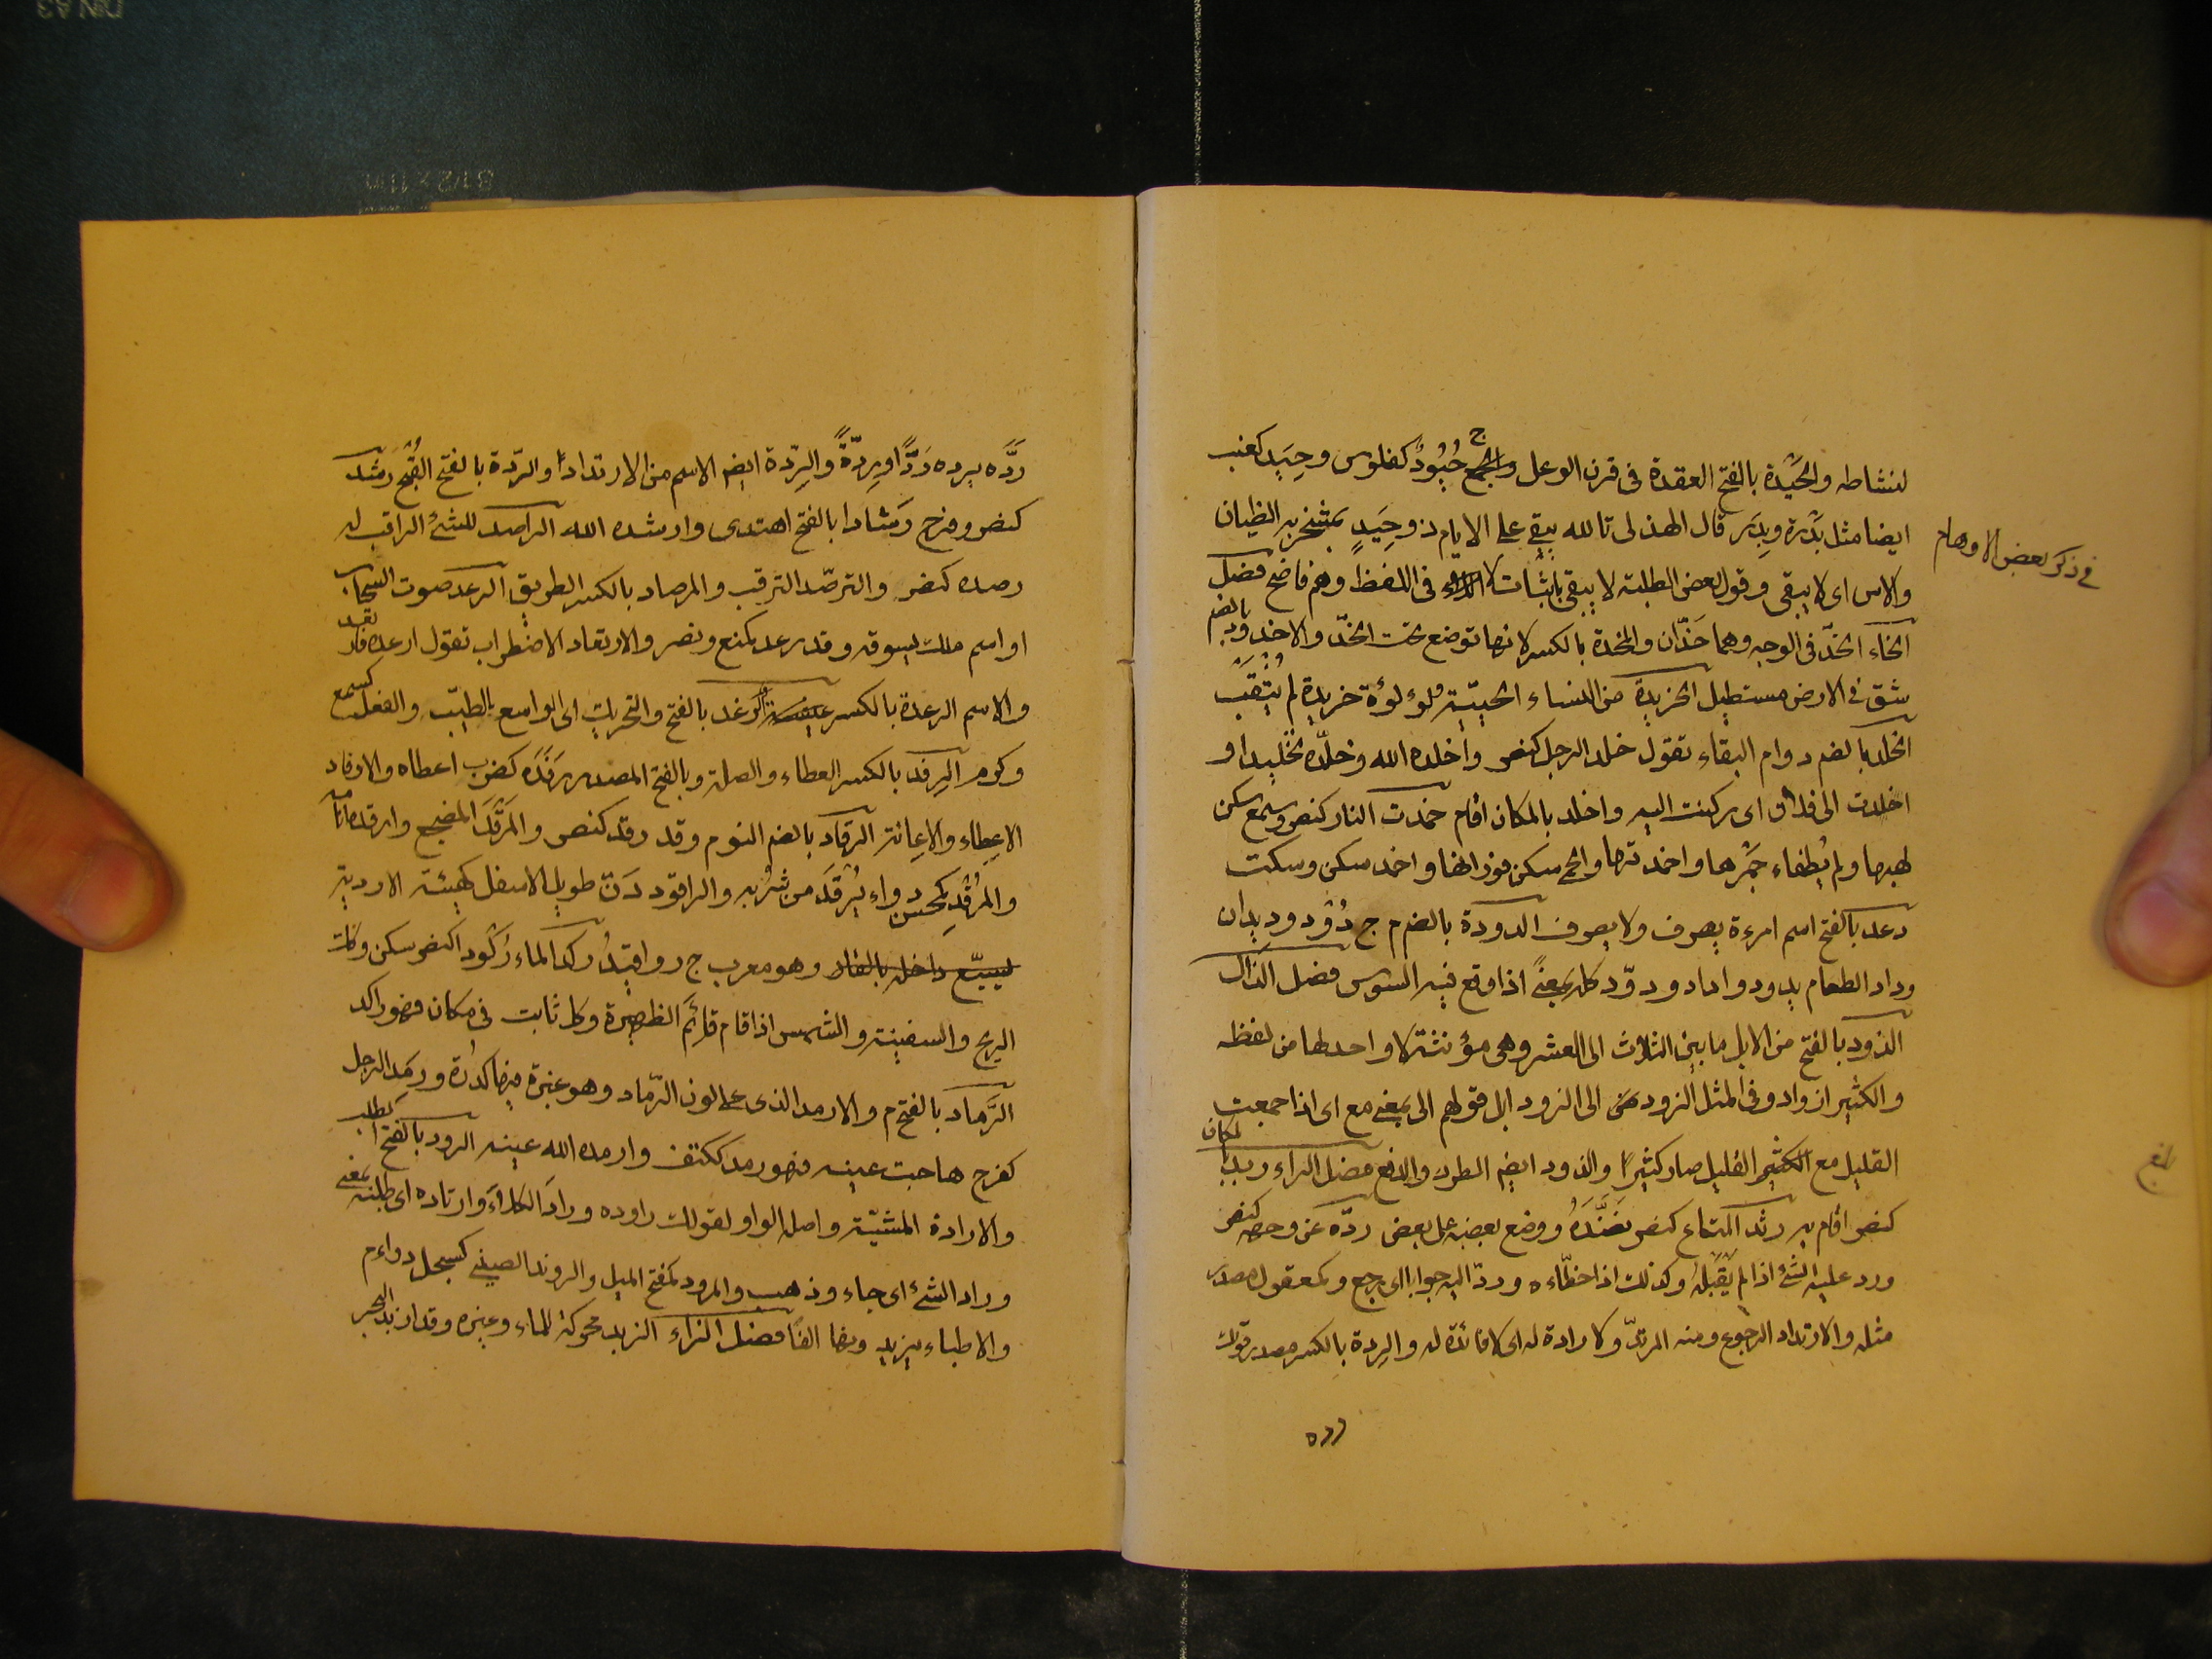 لنشاطه والحَيْدة بالفتح العقدة فى قرن الوعل والجمع ج حُيُودٌ كفلوس وحِيَد كعنب
ايضا مثل بَدْرة وبِدَر قال الهذلى تالله يبقى على الايام ذو حِيَدٍ بمشمخر به الظيان
والاس اى لا يبقى وقول بعض الطلبة لا يبقى باثبات لا فى اللفظ وهم فاضح فصل
الخاء الخدّ فى الوجه وهما خَدّان والمخدة بالكسر لانها توضع تحت الخدّ والاخدود بالضم
شق فى الارض مستطيل الخريدة من النساء الحييّة ولؤلؤة خريدة لم تُثْقَبْ
الخلد بالضم دوام البقاء تقول خلد الرجل كنصر واخلده الله وخلّده تخليدا و
اخلدت الى فلان اى ركنت اليه واخلد بالمكان اقام خمدت النار كنصر وسمع سكن
لهبها ولم يُطفاء جَمْرها واخمدتها والحمى سكن فورانها واخمد سكن وسكت
دعد بالفتح اسم امرءة يصرف ولا يصرف الدودة بالضم م ج دُوْد وديدان
وداد الطعام يدود واداد ودوّد كله بمعنىً اذا وقع فيه السوس فصل الذال
الذود بالفتح من الابل ما بين الثلاث الى العشر وهى مؤنثة لا واحد لها من لفظه
والكثير اذواد وفى المثل الذود الى الذود ابل قولهم الى بمعنى مع اى اذا جمعت
القليل مع القليل صار كثيرًا والذود ايضا الطرد والدفع فصل الراء ربد بالمكان
كنصر اقام به رثد المتاع كنصر نَضَّدَهُ ووضع بعضه على بعض ردّه عن وجهه كنصر
ورد عليه الشئ اذا لم يَقْبَلْهُ وكذلك اذا خطّاءه وردّ اليه جوابا اى رجع وكمعقول مصدر
مثله والارتداد الرجوع ومنه المرتدّ ولا رادة له اى لا فائدة له والرِدة بالكسر مصدر قولك
رده
فى ذكر بعض الاوهام
بلغ
ردَّه يرده رَدًّا ورِدّةً والرِدّة ايضا الاسم من الارتداد والرّدة بالفتح القُبْح رشد
كنصر وفرح رَشادا بالفتح اهتدى وارشده الله الراصد للشئ الراقب له
رصده كنصر والترصّد الترقب والمرصاد بالكسر الطريق الرعد صوت السحاب
او اسم ملك يسوقه وقد رعد كمنع ونصر والارتعاد الاضطراب تقول ارعده فارتعد
والاسم الرعدة بالكسر الرغد بالفتح والتحريك اى الواسع الطيّب والفعل كسمع
وكرم الرِفد بالكسر العطاء والصلة وبالفتح المصدر رَفَدَه كضرب اعطاه والارفاد
الاعطاء والاعانة الرقاد بالضم النوم وقد رقد كنصر والمَرْقَد المضجع وارقده انامه
والمُرْقِد كمحسن دواء يُرْقِدَ من شرُبه والراقود دَنّ طويل الاسفل كهيئة الاردبة
يسيّع داخله بالقار وهو معرب ج رواقيدُ ركد الماء رُكُودا كنصر سكن وكذلك
الريح والسفينة والشمس اذا قام قائم الظهيرة وكل ثابت فى مكان فهو راكد
الرَّماد بالفتح م والارمد الذى على لون الرّماد وهو غبرة فيها كدْرة ورمِد الرجل
كفرح هاجت عينه فهو رمد ككتف وارمده الله عينه الرود بالفتح الطلب
والارادة المشيّة واصله الواو لقولك راوده ورادَ الكلأَ وارتاده اى طلبه بمعنى
وراد الشئ اى جاء وذهب والمرود كمفتح الميل والروند الصينى كسجل دواءم
والاطباء يزيد ونها الفًا فصل الزاء الزبد محركة للماء وغيره وقد ازبد البحر